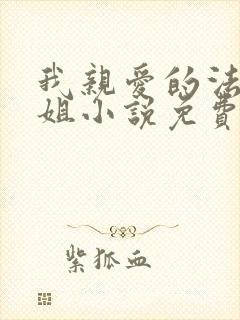 我親愛的法
姐小說免費
紫狐血